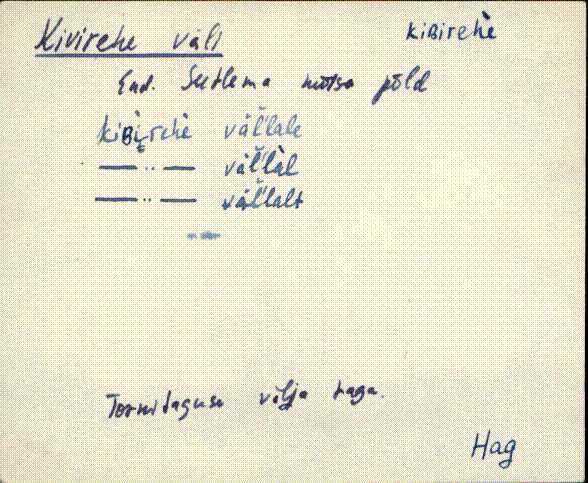 Kivirehe väli
kiʙirehè
End. Sutlema mõisa põld
kiʙirehè välˊlale
— ·· — välˊlàl
— ·· — välˊlalt
Tornitaguse välja taga.
Hag